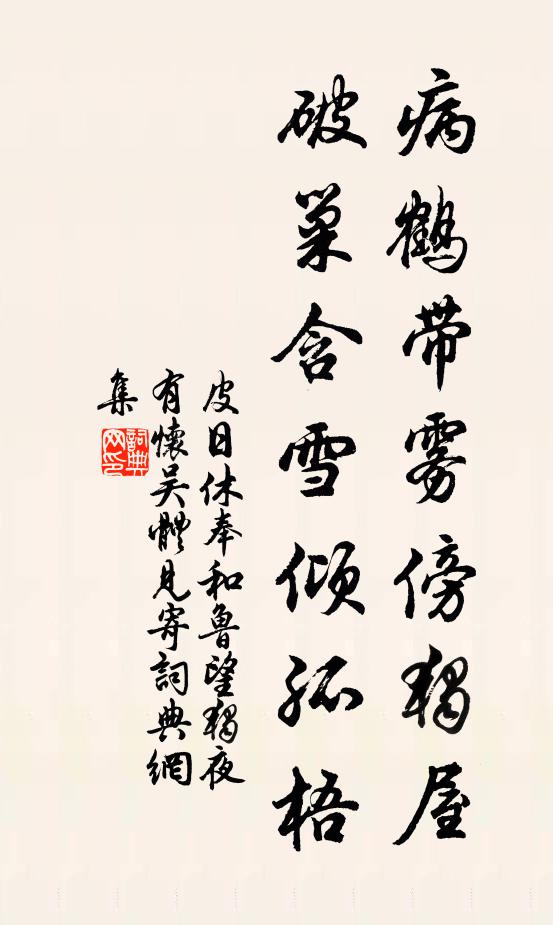 病鶴帶霧傍獨屋
破巢含雪傾孤梧
皮日休奉和魯望獨夜
有懷吳體見寄詞典網
集
詞典網印